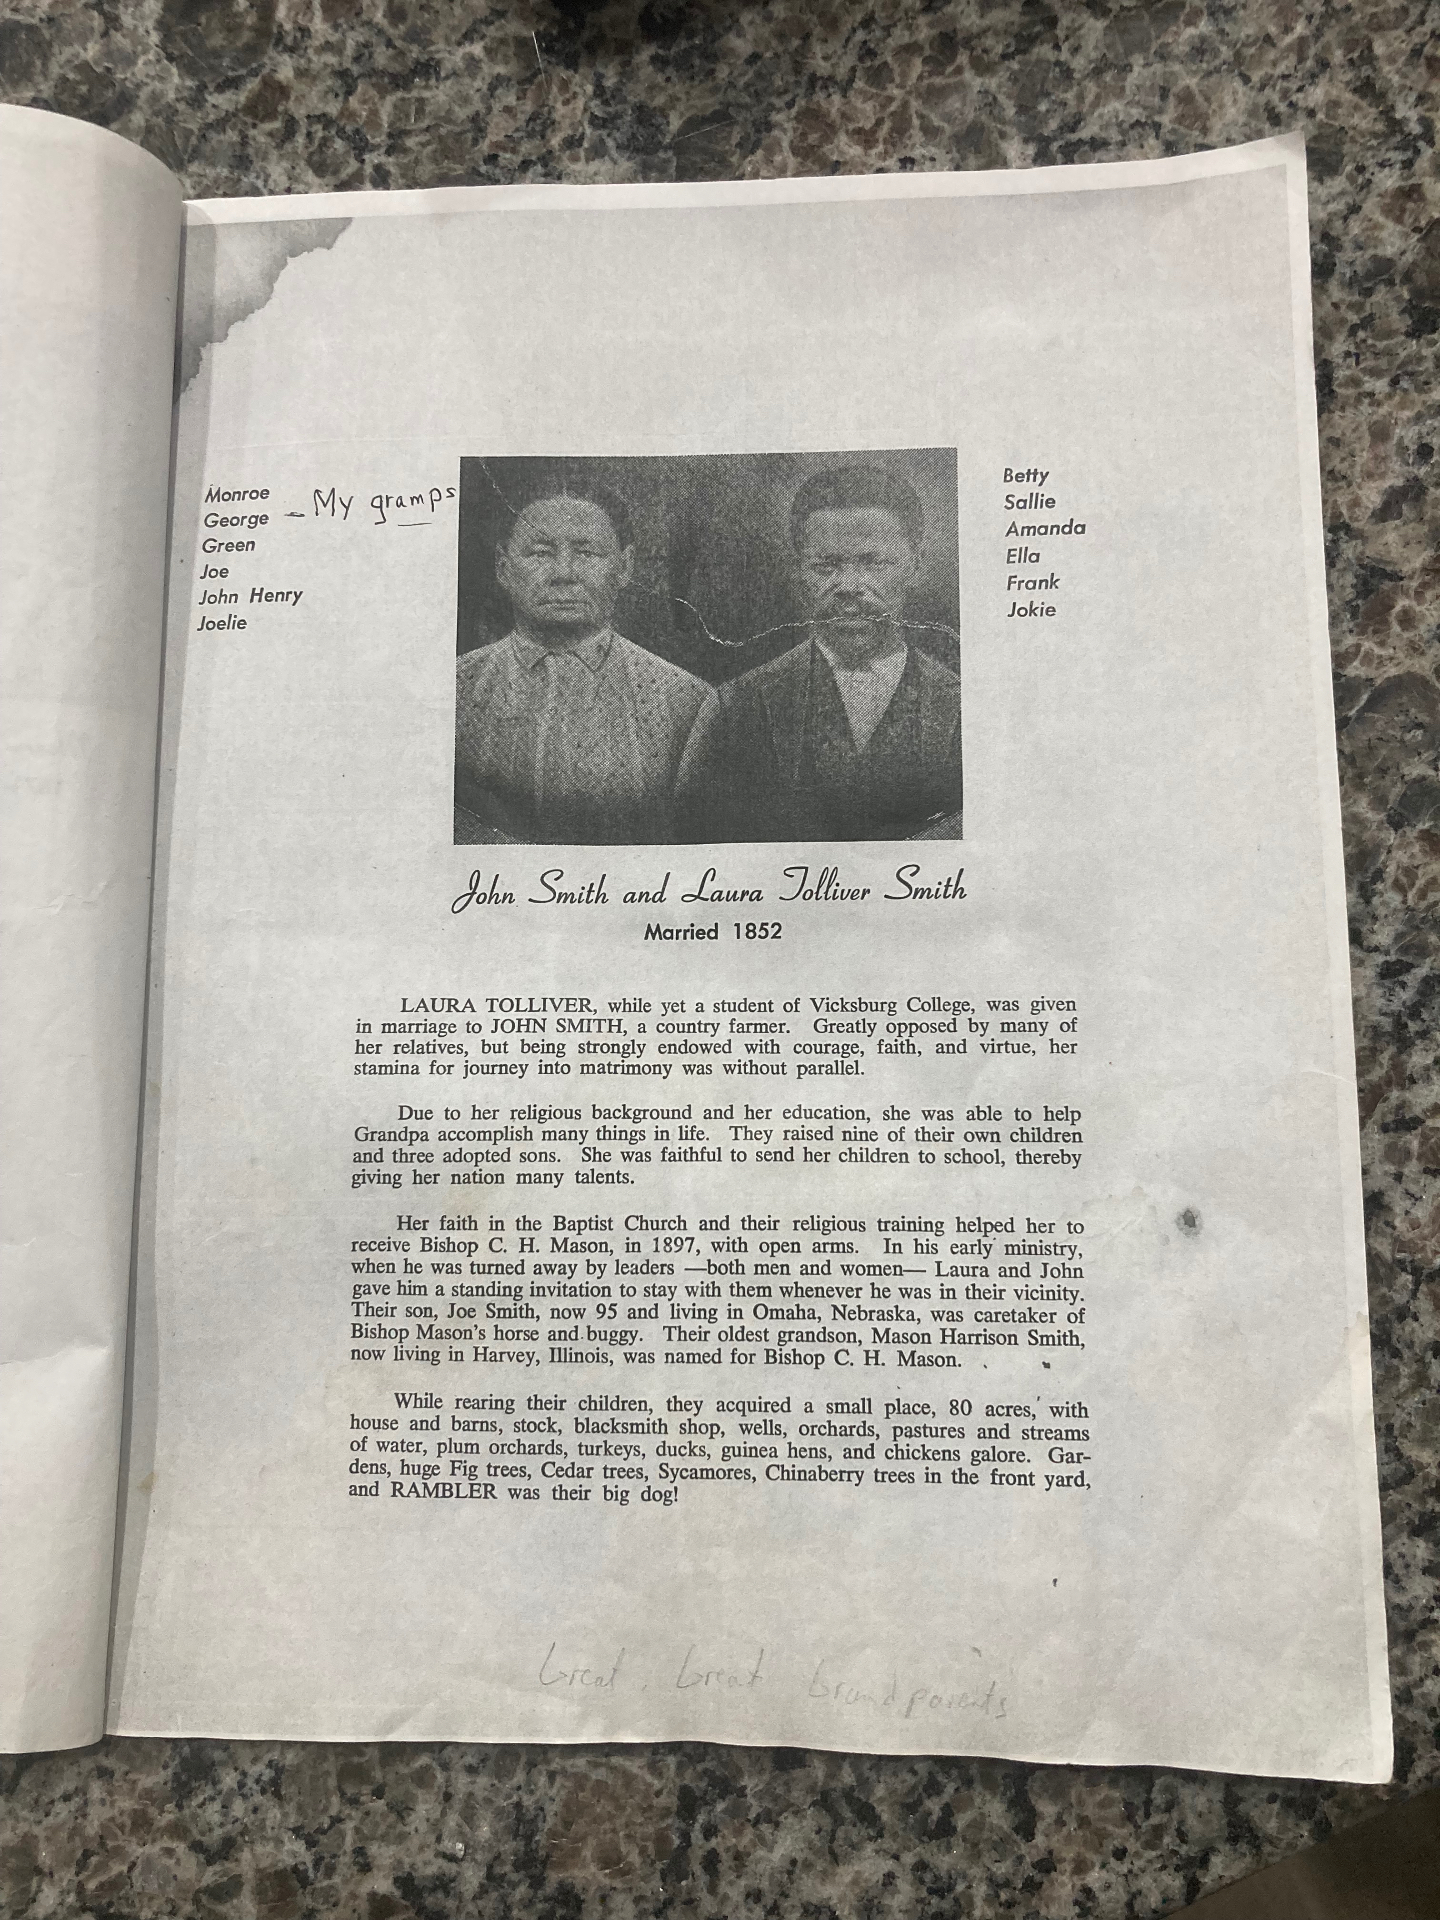 Monroe
George - My gramps
Green
Joe
John Henry
Joelie
Betty
Sallie
Amanda
Ella
Frank
Jokie
John Smith and Laura Tolliver Smith
Married 1852
LAURA TOLLIVER, while yet a student of Vicksburg College, was given
in marriage to JOHN SMITH, a country farmer. Greatly opposed by many of
her relatives, but being strongly endowed with courage, faith, and virtue, her
stamina for journey into matrimony was without parallel.
Due to her religious background and her education, she was able to help
Grandpa accomplish many things in life. They raised nine of their own children
and three adopted sons. She was faithful to send her children to school, thereby
giving her nation many talents.
Her faith in the Baptist Church and their religious training helped her to
receive Bishop C. H. Mason, in 1897, with open arms. In his early ministry,
when he was turned away by leaders —both men and women— Laura and John
gave him a standing invitation to stay with them whenever he was in their vicinity.
Their son, Joe Smith, now 95 and living in Omaha, Nebraska, was caretaker of
Bishop Mason's horse and buggy. Their oldest grandson, Mason Harrison Smith,
now living in Harvey, Illinois, was named for Bishop C. H. Mason.
While rearing their children, they acquired a small place, 80 acres, with
house and barns, stock, blacksmith shop, wells, orchards, pastures and streams
of water, plum orchards, turkeys, ducks, guinea hens, and chickens galore. Gar-
dens, huge Fig trees, Cedar trees, Sycamores, Chinaberry trees in the front yard,
and RAMBLER was their big dog!
Great, Great Grandparents